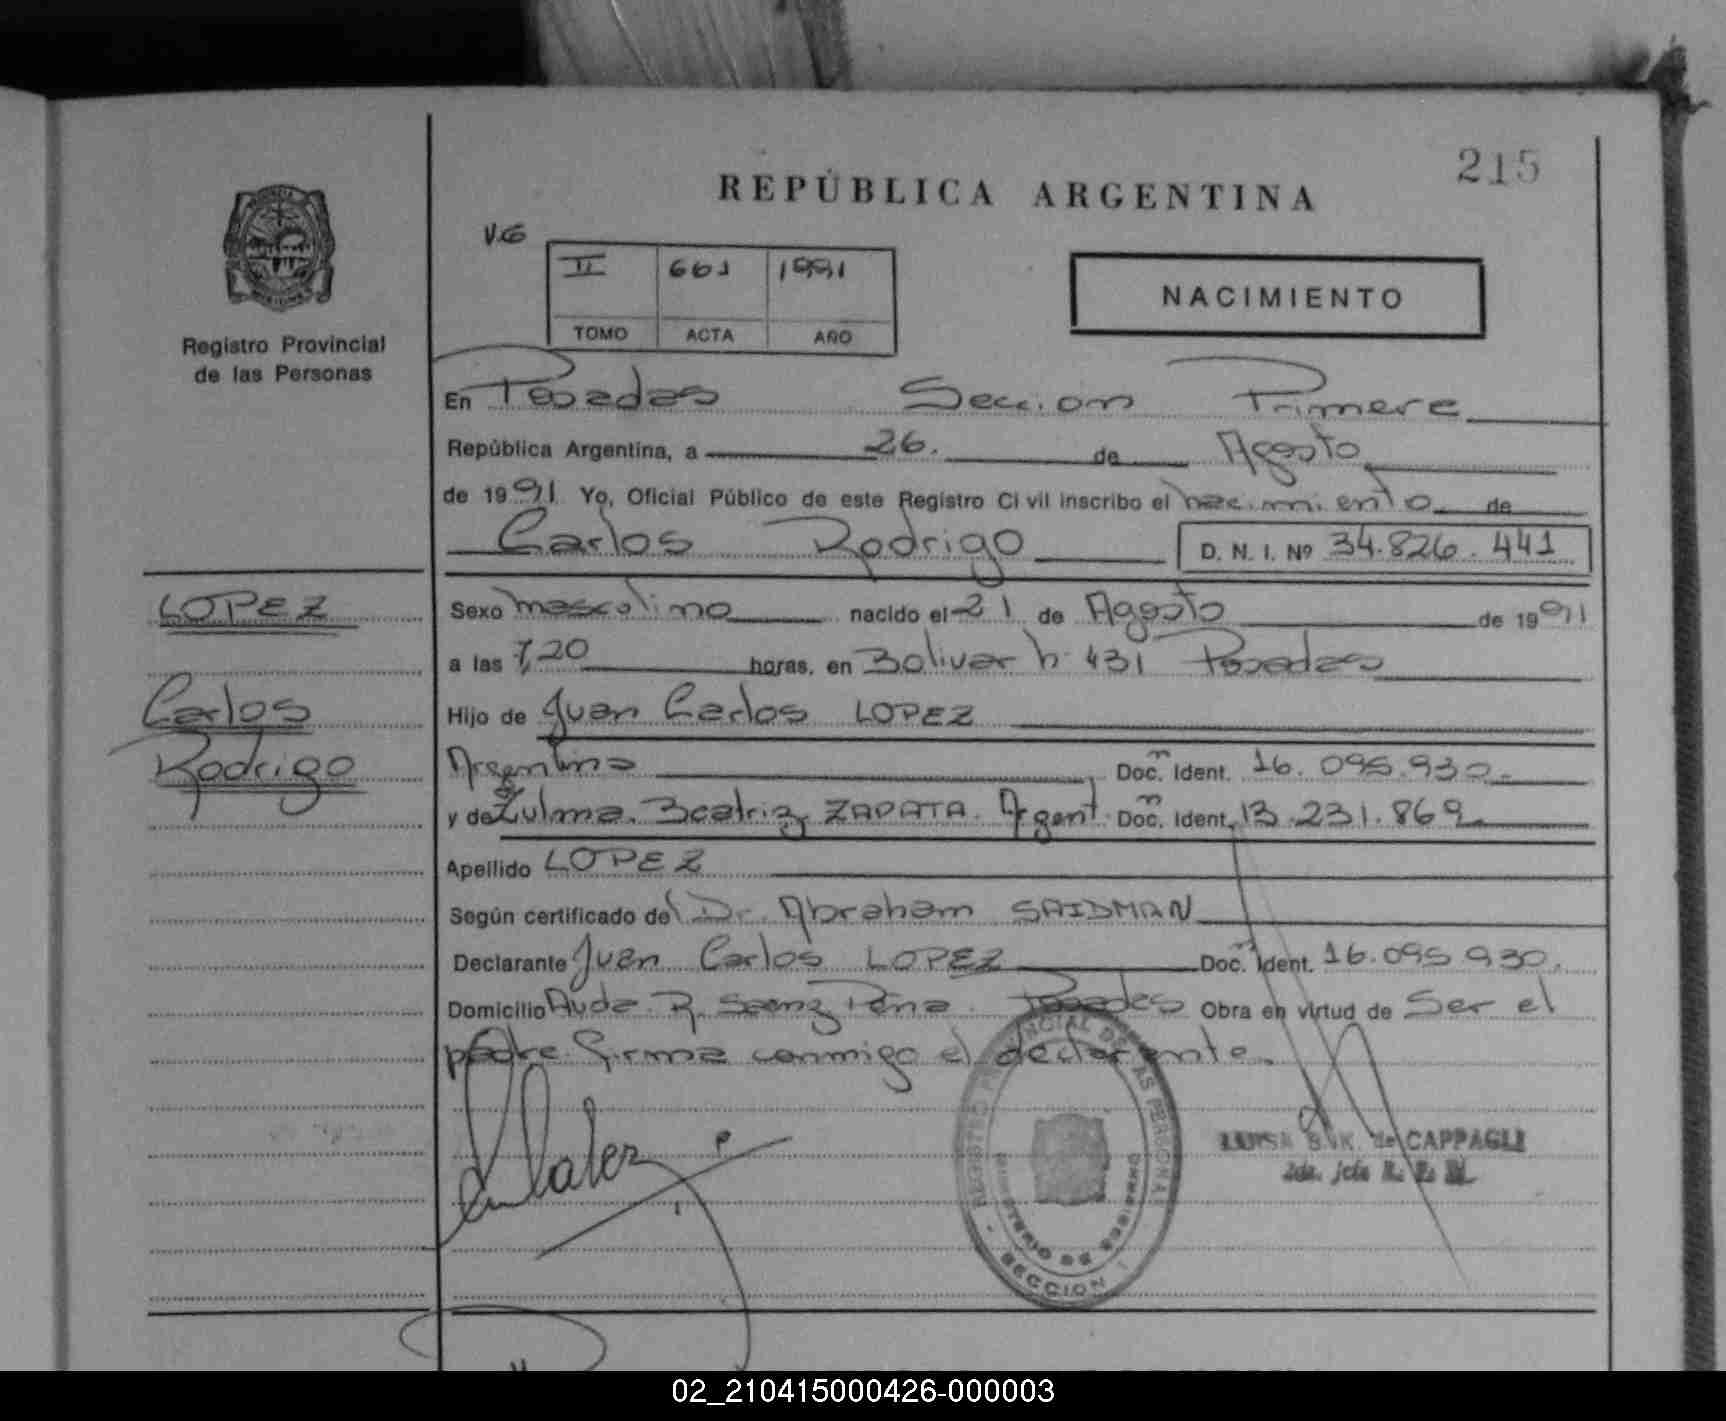 215
REPÚBLICA ARGENTINA
V.G
II 661 1991
TOMO ACTA AÑO
NACIMIENTO
Registro Provincial
de las Personas
En Posadas Seccion Primera
República Argentina, a 26. de Agosto
de 1991 Yo, Oficial Público de este Registro Ci vil inscribo el nacimiento de
Carlos Rodrigo D. N. I. Nº 34.826.441
LOPEZ
Carlos
Rodrigo
Sexo masculino nacido el 21 de Agosto de 1991
a las 7,20 horas. en Bolivar n· 431 Posadas
Hijo de Juan Carlos LOPEZ
Argentino Doc. Ident. 16.095.930.
y de Zulma Beatriz ZAPATA. Argent. Doc. Ident. 13.231.869
Apellido LOPEZ
Según certificado del Dr. Abraham SAIDMAN
Declarante Juan Carlos LOPEZ Doc. Ident. 16.095.930.
Domicilio Avda. R. Saenz Peña. Posadas Obra en virtud de Ser el
padre firma conmigo el declarante.
REGISTRO PROVINCIAL DE LAS PERSONAS
MINISTERIO DE GOBIERNO
SECCION 1
LUISA B. K. de CAPPAGLI
2da. Jefa
02_210415000426-000003